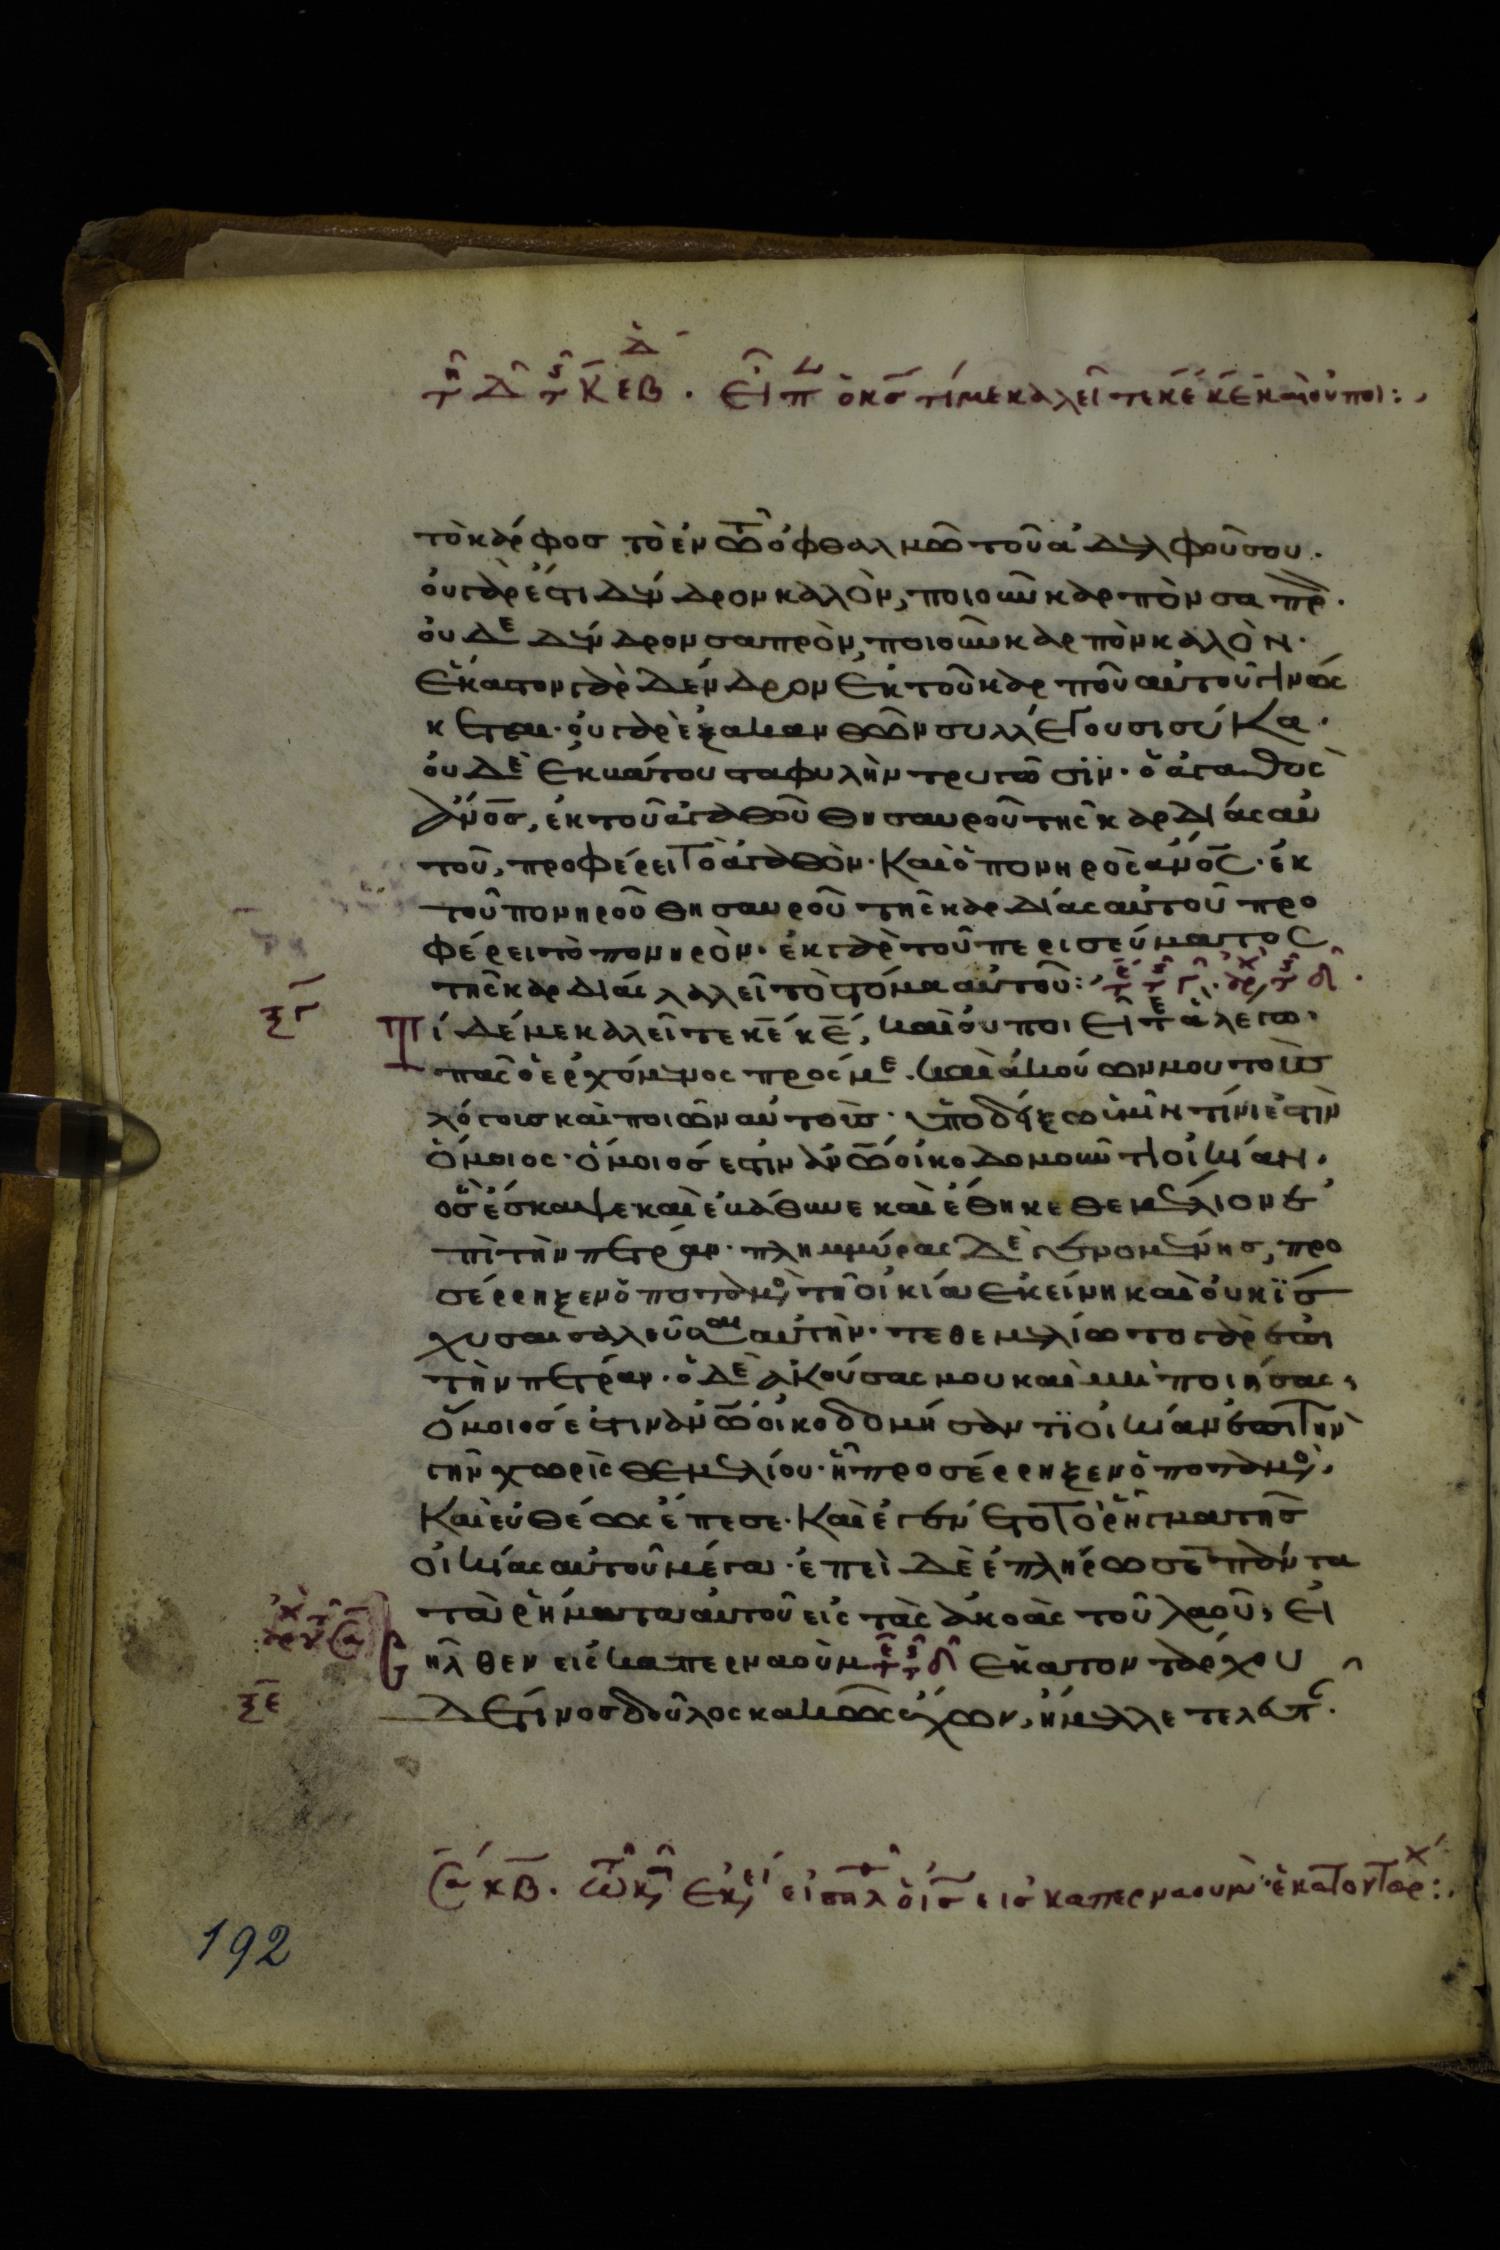 τῇ δ τῆς κεβ. εἶπ ὁ κς τί με καλεῖτε κέ κέ καὶ οὐ ποι:
τὸ κάρφοσ τὸ ἐν τῶ ὀφθαλμῶ τοῦ ἀδελφοῦ σου.
οὐ γάρ ἐστι δένδρον καλὸν, ποιοῦν καρπὸν σαπρ.
οὐδὲ δένδρον σαπρὸν, ποιοῦν καρπὸν καλὸν.
ἕκαστον γὰρ δένδρον ἐκ τοῦ καρποῦ αὐτοῦ γινώς
κεται. οὐ γὰρ ἐξ ἀκανθῶν συλλέγουσι σύκα.
οὐδὲ ἐκ βάτου σταφυλὴν τρυγῶσιν. ὁ ἀγαθὸς
ἄνος, ἐκ τοῦ ἀγαθοῦ θησαυροῦ τῆς καρδίας αὐ
τοῦ, προφέρει τὸ ἀγαθὸν. καὶ ὁ πονηρὸς ἄνος. ἐκ
τοῦ πονηροῦ θησαυροῦ τῆς καρδίας αὐτοῦ προ
φέρει τὸ πονηρὸν. ἐκ γὰρ τοῦ περισεύματος
τῆς καρδίας λαλεῖ τὸ στόμα αὐτοῦ:
ξγ
Τί δέ με καλεῖτε κέ κέ, καὶ οὐ ποιεῖτε ἃ λέγω.
πᾶς ὁ ἐρχόμενος πρός με. καὶ ἀκούων μου τοῖσ
λόγοισ καὶ ποιῶν αὐτοῖσ. ὑποδείξω ὑμῖν τίνι ἐστὶν
ὅμοιος. ὅμοιός ἐστιν ἀνω οἰκοδομοῦν τι οἰκίαν.
ὃσ ἔσκαψε καὶ ἐβάθυνε καὶ ἔθηκε θεμέλιον ἐ
πὶ τὴν πέτραν. πλημμύρας δὲ γενομένησ, προ
σέρρηξεν ὁ ποταμὸ τῆ οἰκία ἐκείνη καὶ οὐκ ἴσ
χυσαι σαλεῦσαι αὐτὴν. τεθεμελίωτο γὰρ ἐπὶ
τὴν πέτραν. ὁ δὲ ἀκούσας μου καὶ μὴ ποιήσας,
ὅμοιοσ ἐστιν ἀνω οἰκοδομήσαντι οἰκίαν ἐπὶ τὴν
γῆν χωρὶς θεμελίου. ἧ προσέρρηξεν ὁ ποταμὸ,
καὶ εὐθέως ἔπεσε. καὶ ἐγένετο τὸ ρῆγμα τῆσ
οἰκίας αὐτοῦ μέγα. ἐπεὶ δὲ ἐπλήρωσε πάντα
τὰ ρήματα αὐτοῦ εἰς τὰς ἀκοὰς τοῦ λαοῦ, εἰ
σῆλθεν εἰς καπερναοὺμ ἑκατοντάρχου
ξε
δέ τινοσ δοῦλος κακῶς ἔχων, ἤμελλε τελευτ.
κβ. τῶ κ ἐκ εἰσηλ ὁ ις εἰσ καπερναουμ ἑκατονταρχ:
192